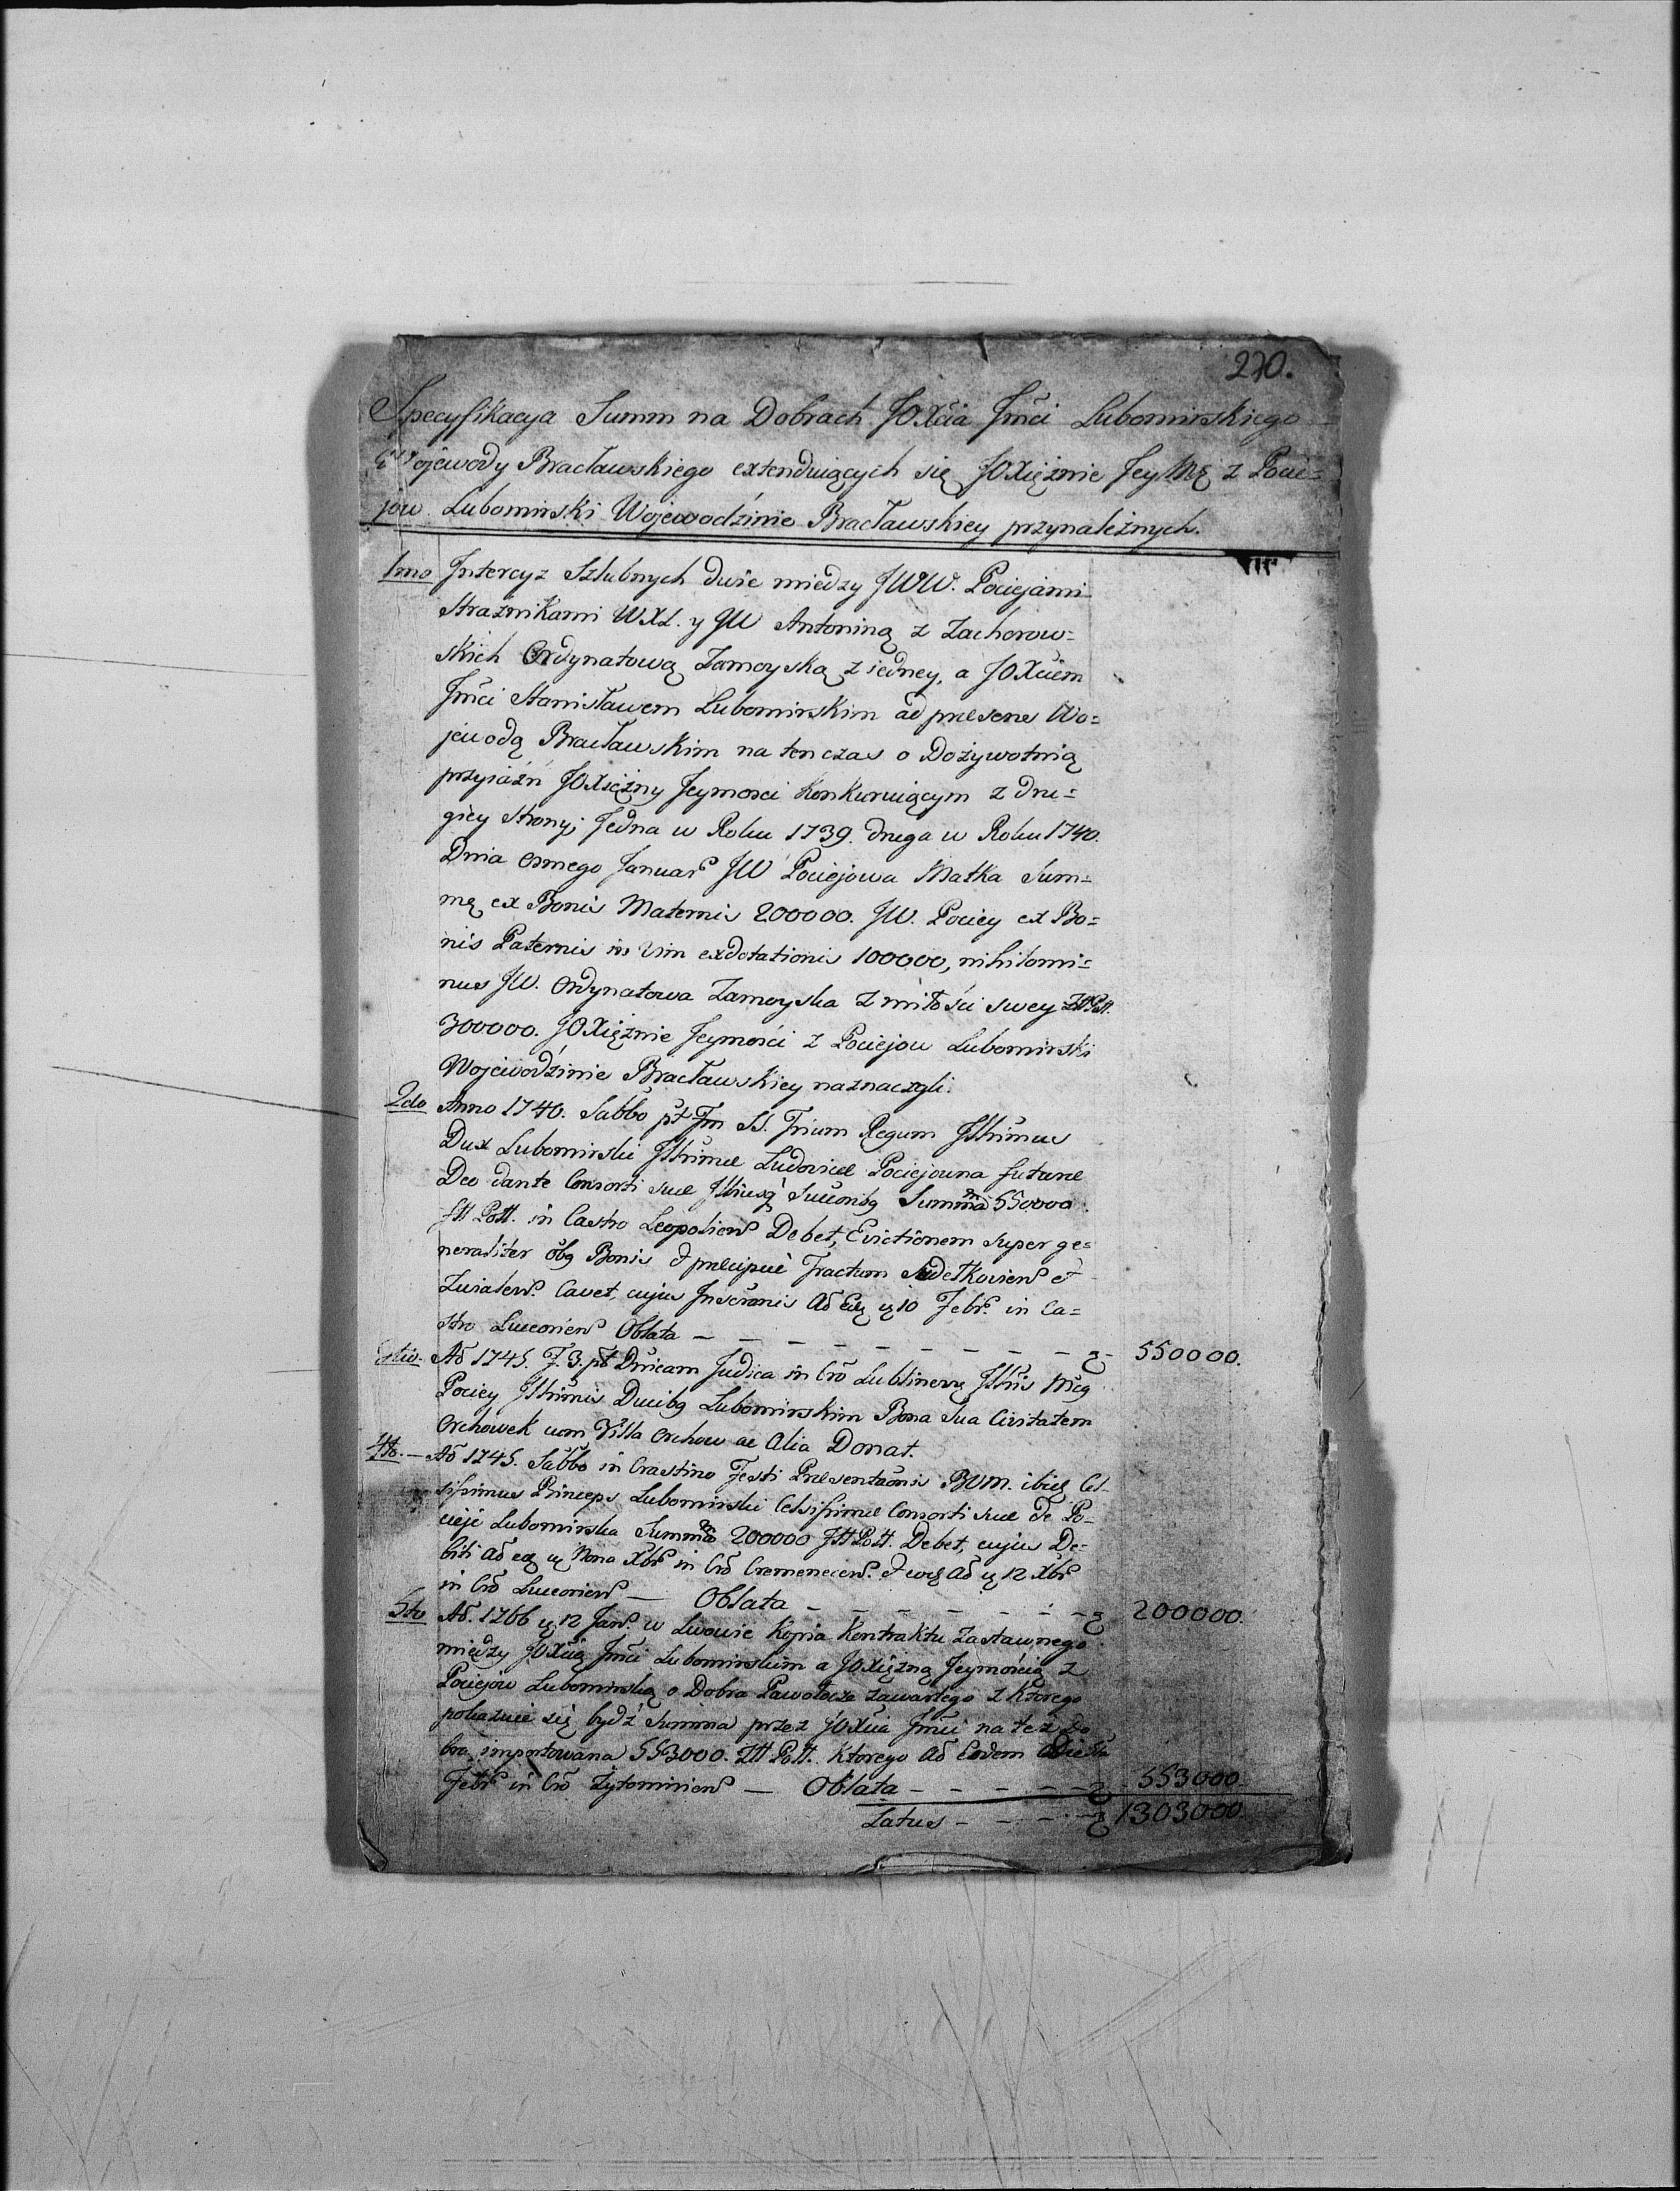 270.
Specyfikacya Summ na Dobrach JOXcia Jmći Lubomirskiego
Wojewody Bracławskiego extenduiących się JOXiężnie Jey Mę z Pocie=
jów Lubomirski Wojewodźinie Bracławskiey przynależnych.
1mo Intercyz Szlubnych dwie miedzy JWW. Pociejami
Strażnikami WXL. y JW Antoniną z Zachorow=
skich Ordynatową Zamoyską z iedney, a JOXciem
Jmći Stanisławem Lubomirskim ad præsens Wo=
jewodą Bracławskim na ten czas o Dożywotnią
przyiaźń JOXiężny Jeymosci konkuruiącym z dru=
giey strony; Jedna w Roku 1739. druga w Roku 1740.
Dnia osmego Januar JW Pociejowa Matka Sum=
mę ex Bonis Maternis 200000. JW. Pociey ex Bo=
nis Paternis in vim exdotationis 100000, nihilomi=
nus JW. Ordynatowa Zamoyska z miłośći swey Złł Poll.
300000. JOXiężnie Jeymośći z Pociejow Lubomirski
Wojewodźinie Bracławskiey naznaczyli.
2do Anno 1740. Sabbo pt Fm SS. Trium Regum Illrimus
Dux Lubomirski Illrimæ Ludovicæ Pociejowna futuræ
Deo dante Consorti suæ Illriusq Succonibg Summam 550000.
fll Poll. in Castro Leopolien Debet, Evictionem super ge=
neraliter obg Bonis & præcipue Tractum Sudetkovien et
Zwiatew. Cavet, cujus Inscronis Ao 10 Febr. in Ca=
stro Luceorien Oblata — — — — — — — — 550000.
3tio. Ao 1745. F. 3. pt Dnicam Judica in Cro Lublinen Illris Mcg
Pociey Illrimis Ducibg Lubomirskim Bona Sua Civitatem
Orchowek cum Villa Orchow ac Alia Donat.
4to. — Ao 1745. Sabbo in Crastino Festi Præsentaonis BVM. ibid Cel-
sissimus Princeps Lubomirski Celsissimæ Consorti suæ de Po-
cieje Lubomirska Summam 200000 fll Poll. Debet, cujus De-
biti Ao Nona Xbr in Cro Cremenecen. & Ao 12 Xbr
in Cro Luceorien — Oblata — — — — — — — 200000.
5to Ao. 1766 12 Jan. w Lwowie Kopia Kontraktu Zastawnego
między JOXcią Jmći Lubomirskim a JOXiężną Jeymośćią z
Pociejow Lubomirską o Dobra Pawołocze zawartego z ktorego
pokazuie się bydź Summa przez JOXcia Jmći na te z Do
bra importowana 553000. Złł Poll. Ktorego Ao Eodem
Febr in Cro Żytomirien — Oblata — — — — — 553000.
Latus — — — — 1303000.